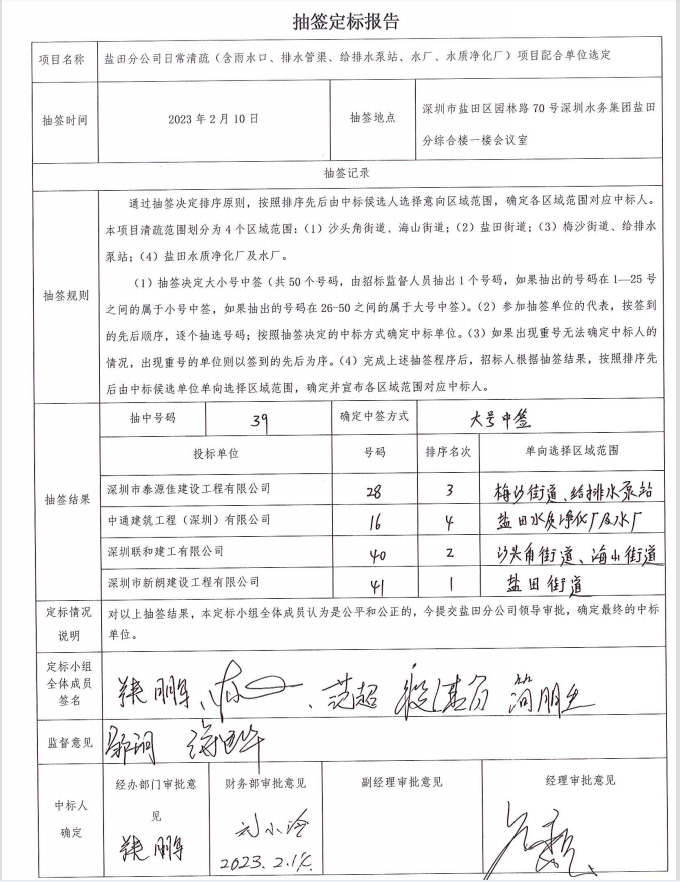 抽签定标报告
项目名称 盐田分公司日常清疏（含雨水口、排水管渠、给排水泵站、水厂、水质净化厂）项目配合单位选定
抽签时间 2023年2月10日 抽签地点 深圳市盐田区园林路70号深圳水务集团盐田
分综合楼一楼会议室
抽签记录
抽签规则
通过抽签决定排序原则，按照排序先后由中标候选人选择意向区域范围，确定各区域范围对应中标人。
本项目清疏范围划分为4个区域范围：（1）沙头角街道、海山街道；（2）盐田街道；（3）梅沙街道、给排水
泵站；（4）盐田水质净化厂及水厂。
（1）抽签决定大小号中签（共50个号码，由招标监督人员抽出1个号码，如果抽出的号码在1—25号
之间的属于小号中签，如果抽出的号码在26-50之间的属于大号中签）。（2）参加抽签单位的代表，按签到
的先后顺序，逐个抽选号码；按照抽签决定的中标方式确定中标单位。（3）如果出现重号无法确定中标人的
情况，出现重号的单位则以签到的先后为序。（4）完成上述抽签程序后，招标人根据抽签结果，按照排序先
后由中标候选单位单向选择区域范围，确定并宣布各区域范围对应中标人。
抽签结果
抽中号码 39 确定中签方式 大号中签
投标单位 号码 排序名次 单向选择区域范围
深圳市泰源佳建设工程有限公司 28 3 梅沙街道、给排水泵站
中通建筑工程（深圳）有限公司 16 4 盐田水质净化厂及水厂
深圳联和建工有限公司 40 2 沙头角街道、海山街道
深圳市新朗建设工程有限公司 41 1 盐田街道
定标情况
说明
对以上抽签结果，本定标小组全体成员认为是公平和公正的，今提交盐田分公司领导审批，确定最终的中标
单位。
定标小组
全体成员
签名
范超
监督意见
中标人
确定
经办部门审批意
见
财务部审批意见
刘小玲
2023.2.14.
副经理审批意见
经理审批意见